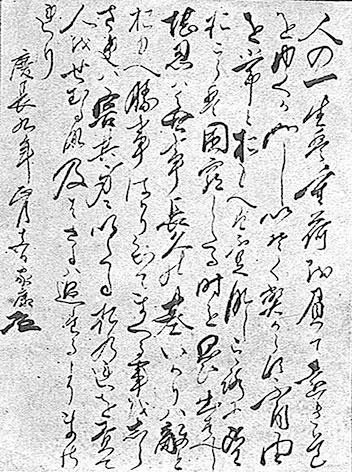 人の一生は重荷を負て遠き道
をゆくか如しいそくへからす不自由
を常とおもへは不足なしこゝろに望
おこらは困窮したる時を思ひ出すへし
堪忍は無事長久の基いかりは敵と
おもへ勝事はかり知てまくる事をしら
されは害其身にいたるおのれを責て
人をせむるな及はさるは過たるよりまさ
れり
慶長九年 家康